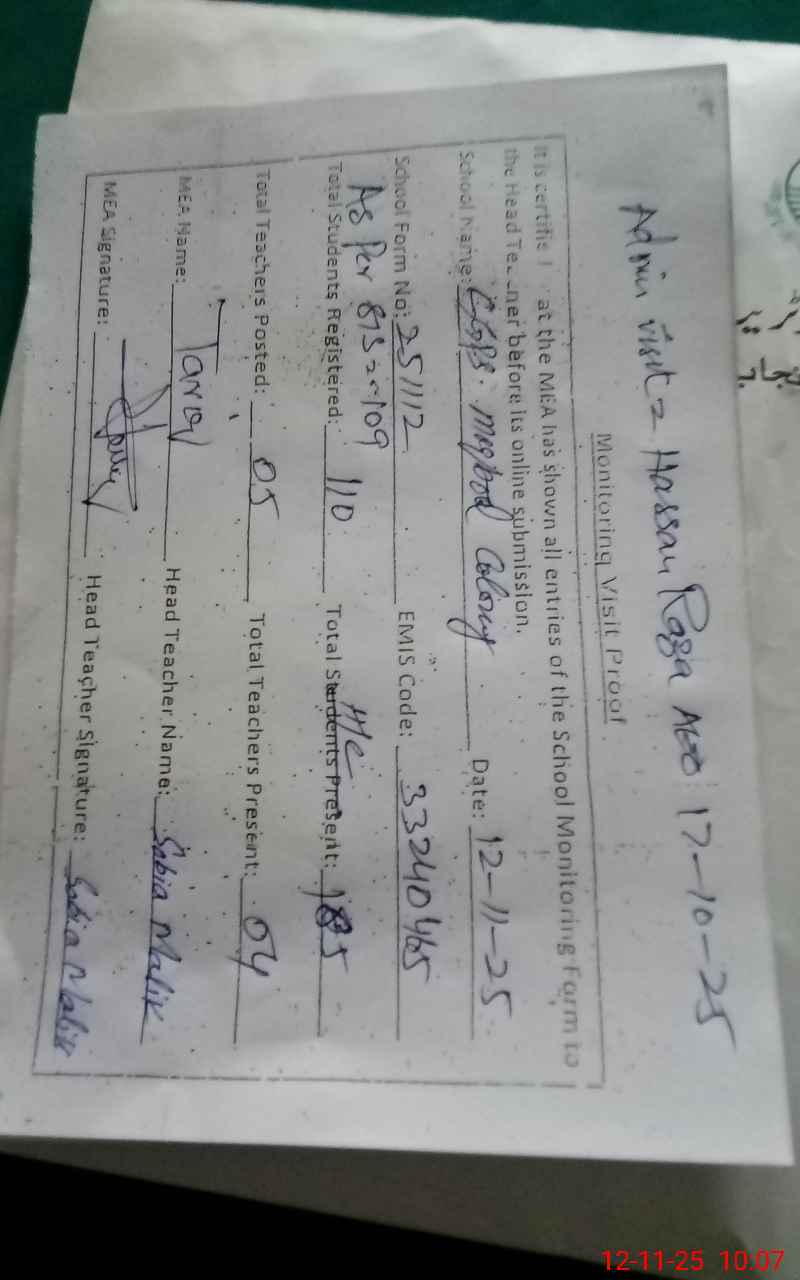 Admin visit = Hassan Raza AEO 17-10-25
Monitoring Visit Proof
It is certified that the MEA has shown all entries of the School Monitoring Form to
the Head Teacher before its online submission.
School Name: GGPS. maqbool Colony Date: 12-11-25
School Form No: 251112 EMIS Code: 33240465
As Per
Total Students Registered: 110 Total Students Present:
Total Teachers Posted: 05 Total Teachers Present: 04
MEA Name: Tariq Head Teacher Name: Sabia Malik
MEA Signature: Head Teacher Signature: Sabia Malik
12-11-25 10:07